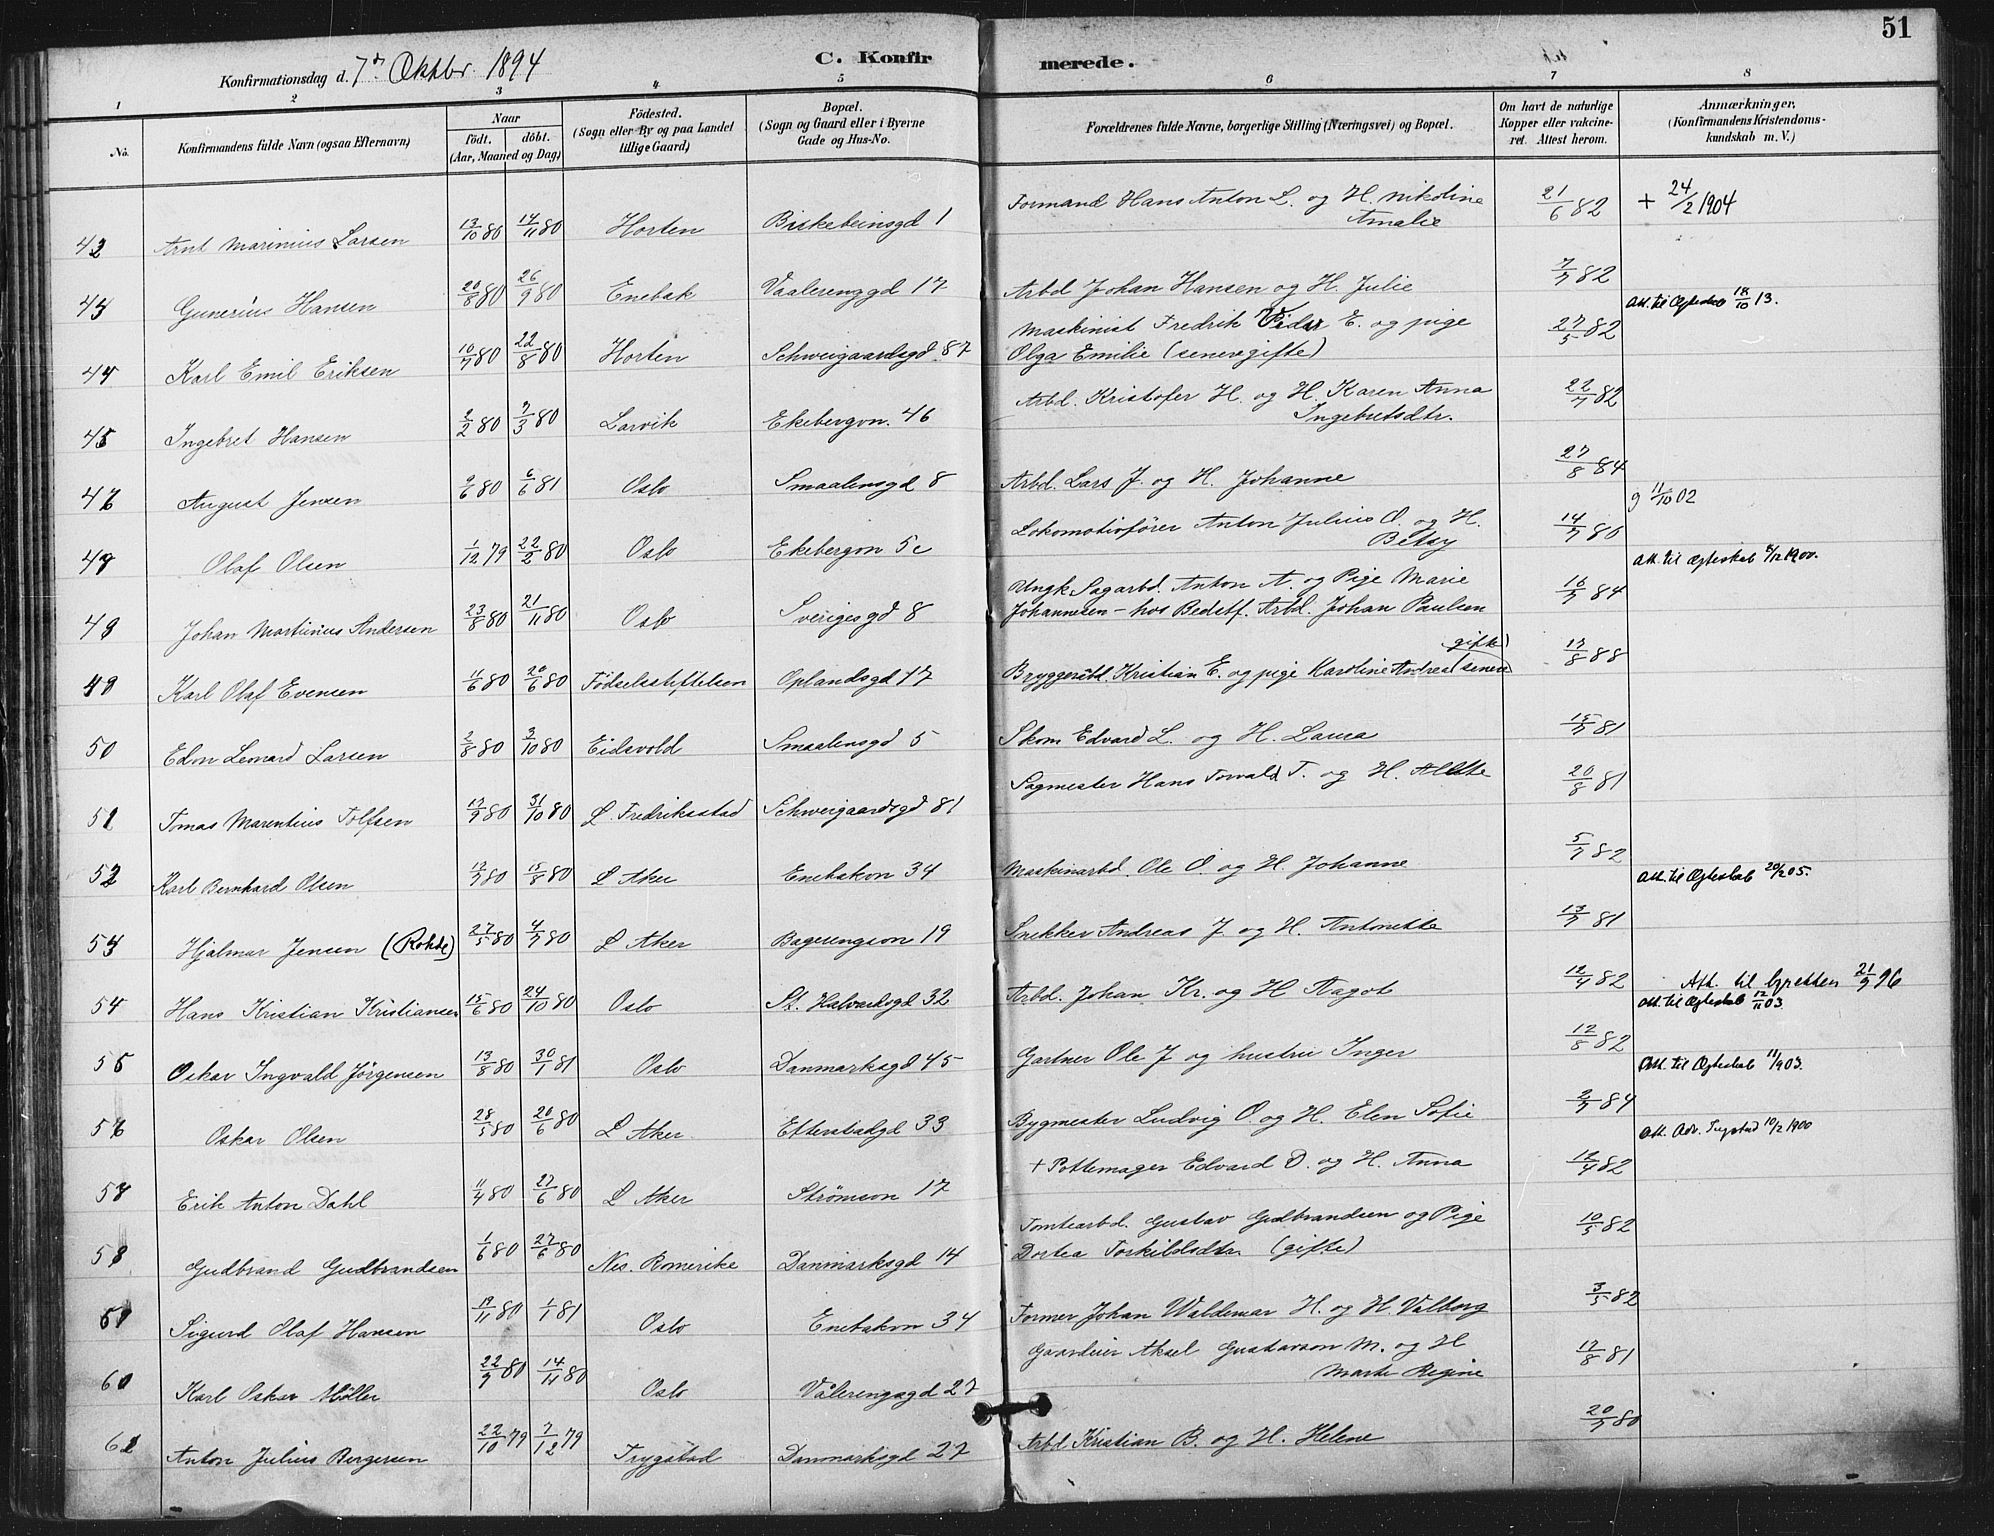 51
Konfirmationsdag d. 7de Oktbr. 1894
C. Konfirmerede.
1 2 3 4 5 6 7 8
No. Konfirmandens fulde Navn (ogsaa Efternavn)
Naar födt. döbt. (Aar, Maaned og Dag)
Födested. (Sogn eller By og paa Landet tillige Gaard)
Bopæl. (Sogn og Gaard eller i Byerne Gade og Hus-No.
Forældrenes fulde Navne, borgerlige Stilling (Næringsvei) og Bopæl.
Om havt de naturlige Kopper eller vakcineret. Attest herom.
Anmærkninger. (Konfirmandens Kristendomskundskab m. V.)
Arnt Marinius Larsen 13/10 80 14/11 80 Horten Birkebeinsgd 1 Formand Hans Anton L. og H. Nikoline Amalie 21/6 82 + 24/2 1904
Gunerius Hansen 20/8 80 26/9 80 Enebak Vaalerenggd 17 Arbd Johan Hansen og H. Julie 7/7 82 Att. til Ægteskab 18/10 13.
Karl Emil Eriksen 10/7 80 22/8 80 Horten Schweigaardsgd. 87 Maskinist Fredrik E. og pige Olga Emilie (senere gifte) 27/5 82
Ingebret Hansen 2/2 80 7/3 80 Larvik Ekebergvn. 46 Arbd. Kristofer H. og H. Karen Anna Ingebretsdtr. 22/7 82
August Jensen 9/6 80 6/6 81 Oslo Smaalensgd 8 Arbd. Lars J. og H. Johanne 27/8 84 g 11/10 02
Olaf Olsen 1/12 79 22/2 80 Oslo Ekebergvn 5c Lokomotivfører Anton Julius O. og H. Betsy 14/7 80 Att. til Ægteskab 8/12 1900.
Johan Martinius Andersen 23/8 80 21/11 80 Oslo Sverigesgd 8 Ungk Sagarbd. Anton A. og Pige Marie Johannesen - hos Bedstf. Arbd. Johan Paulsen 16/7 84
49 Karl Olaf Evensen 11/6 80 20/6 80 Födselsstiftelsen Oplandsgd 17 Bryggeriarbd. Kristian E. og pige Karoline Andrea (senere gifte) 17/8 88
50 Edvn Leonard Larsen 2/8 80 3/10 80 Eidsvold Smaalensgd 5 Skom Edvard L. og H. Laura 15/7 81
51 Tomas Marentius Tolfsen 17/9 80 31/10 80 L Fredriksstad Schweigaardsgd 81 Sagmester Hans Torvald T. og H. Alette 20/8 81
52 Karl Bernhard Olsen 13/7 80 15/8 80 L Aker Enebakvn 34 Maskinarbd. Ole O. og H. Johanne 5/7 82 Att. til Ægteskab 20/2 05.
53 Hjalmar Jensen (Rohde) 27/5 80 4/7 80 L Aker Bagerengvn 19 Snekker Andreas J. og H. Antonette 13/7 81
54 Hans Kristian Kristiansen 15/6 80 24/10 80 Oslo St. Halvardsgd 32 Arbd. Johan Kr. og H Aagot 12/7 82 Att. til 21/9 96
Att. til Ægteskab 12/11 03
55 Oskar Ingvald Jørgensen 13/8 80 30/1 81 Oslo Danmarksgd 45 Gartner Ole J og hustru Inger 12/8 82 Att. til Ægteskab 11/9 03.
56 Oskar Olsen 28/5 80 20/6 80 L Aker. Etterstadgd 33 Bygmester Ludvig O. og H. Elen Sofie 2/7 84 Att. 10/2 1900
57 Erik Anton Dahl 11/4 80 27/6 80 L Aker Strømsvn 17 + Pottemager Edvard D. og H. Anna 12/4 82
58 Gudbrand Gudbrandsen 1/6 80 27/6 80 Nes. Romerike Danmarksgd 14 Tomtearbd. Gustav Gudbrandsen og Pige Dortea Torkildsdtr (gifte) 10/5 82
59 Sigurd Olaf Hansen 19/11 80 1/1 81 Oslo Enebakvn 34 Former Johan Waldemar H. og H. Valborg 3/5 82
60 Karl Oskar Møller 22/9 80 14/11 80 Oslo Vålerengagd 27 Aksel Gustavson M. og H Marte Regine 17/8 81
61 Anton Julius Bergersen 22/10 79 7/12 79 Trygstad Danmarksgd 27 Arbd Kristian B. og H. Helene 20/7 80